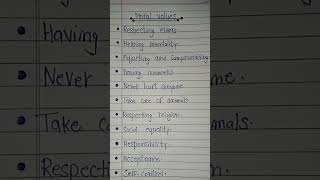 Moral values
Respecting elders
Helping mentality
Adjusting and Compromising
Having manners
Never hurt anyone
Take care of animals
Respecting religion
Social equality
Responsibility
Acceptance
Self-control
Having
Never
me.
Take ca
mals.
Respectin